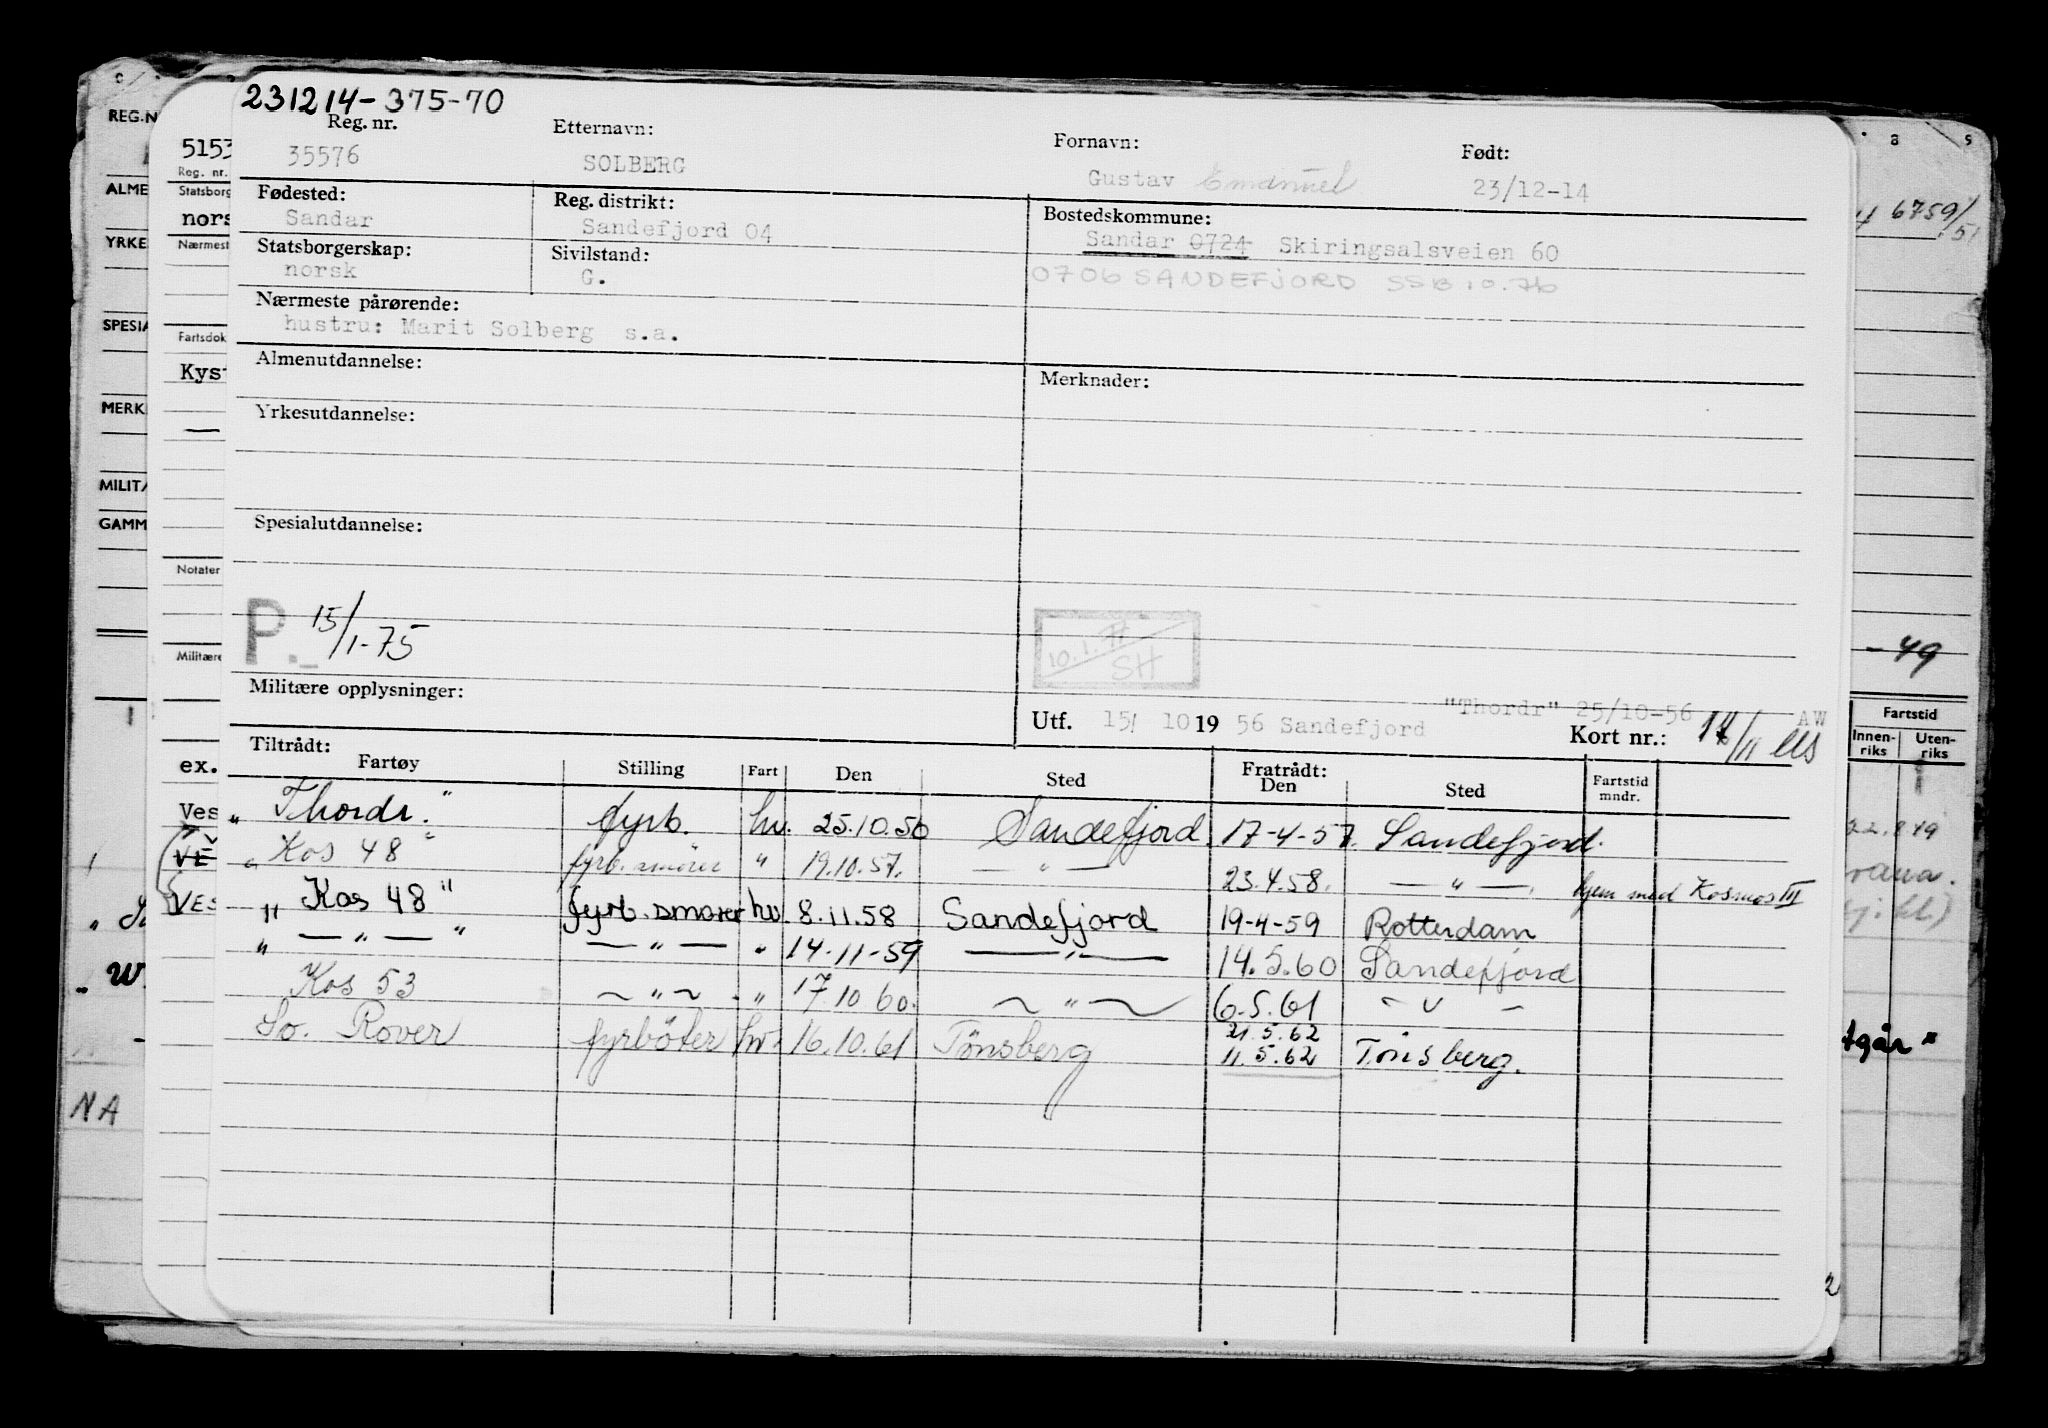 231214-375-70
Reg. nr. Etternavn: Fornavn: Født:
35576 SOLBERG Gustav Emanuel 23/12-14
Fødested: Reg. distrikt: Bostedskommune:
Sandar Sandefjord 04 Sandar 0724 Skiringsalsveien 60
Statsborgerskap: Sivilstand:
norsk G. 0706 SANDEFJORD SSB 10.76
Nærmeste pårørende:
hustru: Marit Solberg s.a.
Almenutdannelse: Merknader:
Yrkesutdannelse:
Spesialutdannelse:
P. 15/1-75
10.1.77
SH
Militære opplysninger:
"Thordr" 25/10-56 AW
Utf. 15/ 10 19 56 Sandefjord Kort nr.:
Tiltrådt: Fratrådt:
Fartøy Stilling Fart Den Sted Den Sted Fartstid mndr.
"Thordr." fyrb. hv. 25.10.56 Sandefjord. 17-4-57. Sandefjord.
"Kos 48" fyrb. smører " 19.10.57. — " — 23.4.58. — " —. hjem med Kosmos III
"Kos 48" fyrb. smører hv. 8.11.58 Sandefjord 19-4-59 Rotterdam
" — " — " — " — " 14-11-59 — " — 14.5.60 Sandefjord
Kos 53 ~ " ~ " 17 10 60. ~ " ~ 6.5.61 - " -
21.5.62
So. Rover fyrbøter hv. 16.10.61 Tønsberg 11.5.62 Tønsberg.
REG.N
ALME
YRKE
SPESIA
MERK
MILITÆ
GAMM
5153
Reg. nr.
Statsborg
nors
Nærmest
Fartsdok
Kyst
—
Notater
Militære
ex.
Ves
VE
VES
NA
8 9
6759/51
-49
Fartstid
Innen-riks Uten-riks
tgår
2